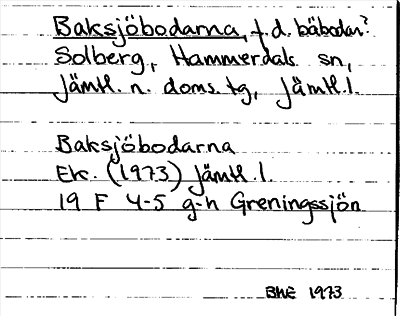 Baksjöbodarna, f.d. bäbodar?
Solberg, Hammerdals sn,
Jämtl. n. doms. tg, Jämtl. l.
Baksjöbodarna
Ek. (1973) Jämtl. l.
19 F 4-5 g-h Greningssjön
BHE 1973